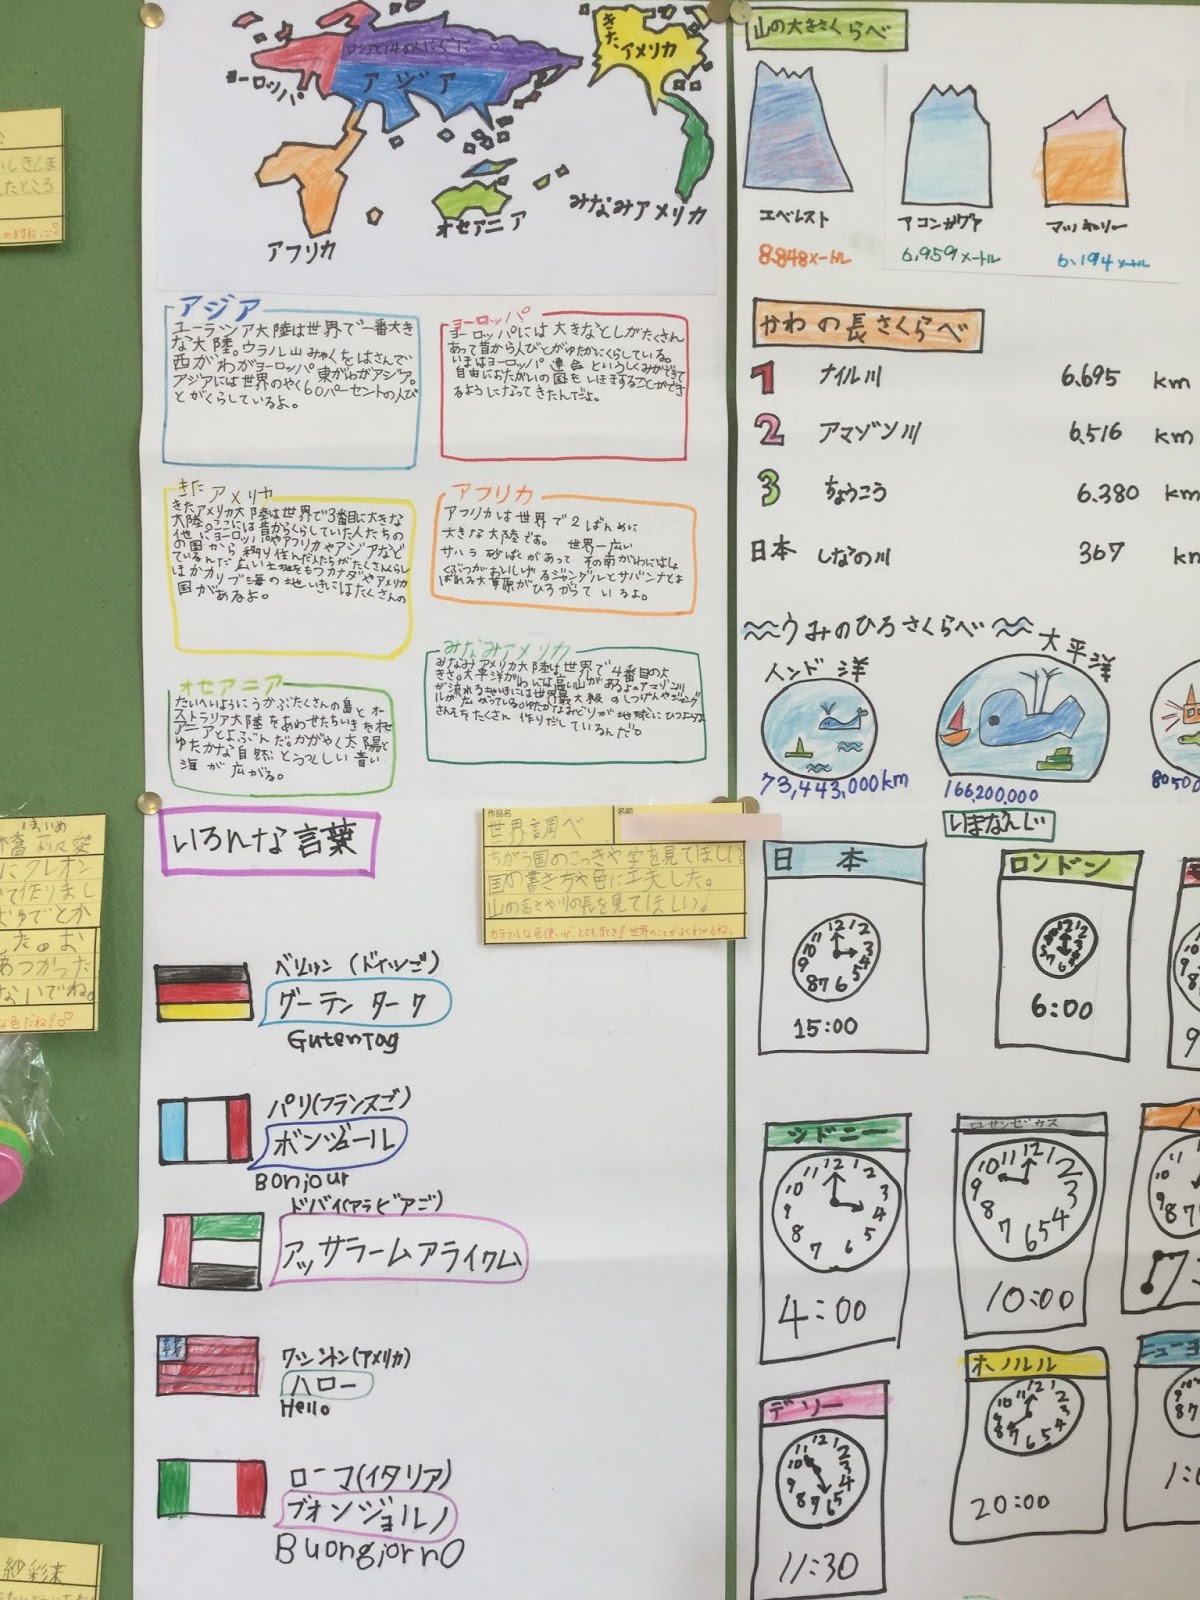 ヨーロッパ
アジア
きたアメリカ
アフリカ
オセアニア
みなみアメリカ
アジア
ユーラシア大陸は世界で一番大き
な大陸。ウラル山みゃくをはさんで
西がわがヨーロッパ東がわがアジア。
アジアには世界のやく60パーセントの人び
とがくらしているよ。
ヨーロッパ
ヨーロッパには大きなとしがたくさん
あって昔から人びとがゆたかにくらしている。
いまはヨーロッパ連合というしくみができて
自由におたがいの国を
るようになってきたんだよ。
きたアメリカ
きたアメリカ大陸は世界で3番目に大きな
大陸。ここには昔からくらしていた人たちの
他にヨーロッパやアフリカやアジアなど
の国から移り住んだ人たちがたくさんくらし
ているんだ広い土地をもつカナダやアメリカ
ほかカリブ海の地いきにはたくさんの
国があるよ。
アフリカ
アフリカは世界で2ばんめに
大きな大陸です。 世界一広い
サハラ砂ばくがあって その南がわにはし
ょくぶつがおいしげるジャングルとサバンナとよ
ばれる大草原がひろがっているよ。
オセアニア
たいへいようにうかぶたくさんの島とオー
ストラリア大陸をあわせたちいきをオセ
アニアとよぶんだ。かがやく太陽と
ゆたかな自然とうつくしい青い
海が広がる。
みなみアメリカ
みなみアメリカ大陸は世界で4番目の大
きさ。太平洋がわには高い山があるよ。アマゾン川
が流れる地いきには世界最大級の
さんそをたくさん作りだしているんだ。
いろんな言葉
作品名
名前
世界調べ
ちがう国のこっきや字を見てほしい
国の書き方や色に工夫した。
山の高さや川の長を見てほしい。
カラフルな色使いが、とてもすてき!世界のことがよくわかるね。
ベルリン(ドイツご)
グーテンターク
GutenTag
パリ(フランスご)
ボンジュール
Bonjour
ドバイ(アラビアご)
アッサラームアライクム
ワシントン(アメリカ)
ハロー
Hello
ローマ(イタリア)
ブオンジョルノ
BuongiornO
山の大きさくらべ
エベレスト
8.848メートル
アコンガグア
6,959メートル
マッキンリー
6.194メートル
かわの長さくらべ
1 ナイル川 6.695 km
2 アマゾン川 6,516 km
3 ちょうこう 6.380 km
日本 しなの川 367 km
うみのひろさくらべ
インド洋
73,443,000km
太平洋
166,200,000
いまなんじ
日本
12 1 2 3 4 5 6 7 8 9 10 11
15:00
ロンドン
6:00
シドニー
12 1 2 3 4 5 6 7 8 9 10 11
4:00
ロサンゼルス
12 1 2 3 4 5 6 7 8 9 10 11
10:00
デリー
12 1 2 3 4 5 6 7 8 9 10 11
11:30
ホノルル
12 1 2 3 4 5 6 7 8 9 10 11
20:00